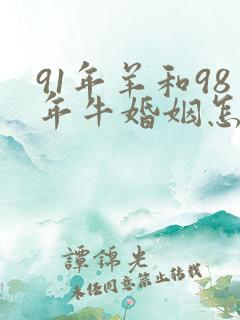 91年羊和98
年牛婚姻怎
譚錦先
未经同意禁止转载